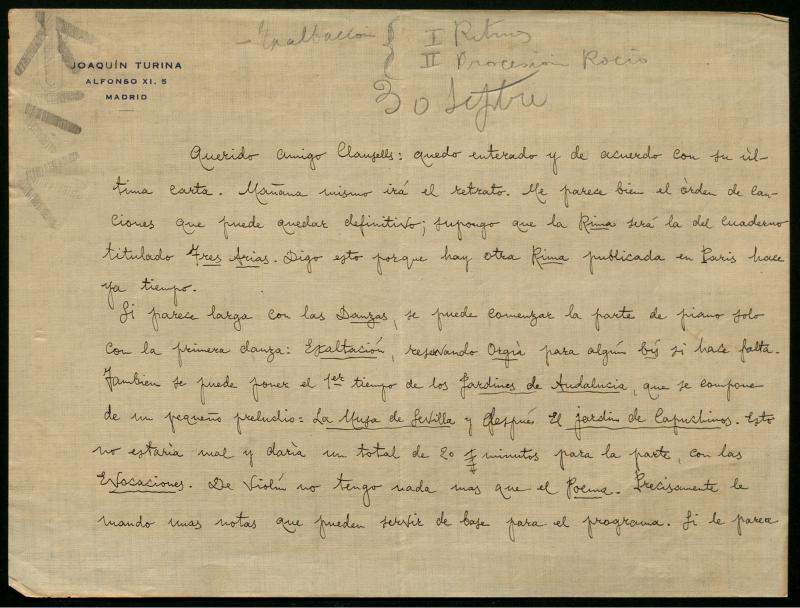 JOAQUÍN TURINA
ALFONSO XI, 5
MADRID
- Exaltación { I Ritmos
II Procesión Rocío
30 Septbre
Querido amigo Clausells: quedo enterado y de acuerdo con su úl-
tima carta. Mañana mismo irá el retrato. Me parece bien el órden de can-
ciones que puede quedar definitivo; supongo que la Rima será la del cuaderno
titulado Tres Arias. Digo esto porque hay otra Rima publicada en Paris hace
ya tiempo.
Si parece larga con las Danzas, se puede comenzar la parte de piano solo
con la primera danza: Exaltación, reservando Orgía para algún bis si hace falta.
Tambien se puede poner el 1er tiempo de los Jardines de Andalucia, que se compone
de un pequeño preludio: La Musa de Sevilla y después El jardín de Capuchinos. Esto
no estaría mal y daría un total de 20 minutos para la parte, con las
Evocaciones. De violín no tengo nada mas que el Poema. Precisamente le
mando unas notas que pueden servir de base para el programa. Si le parece